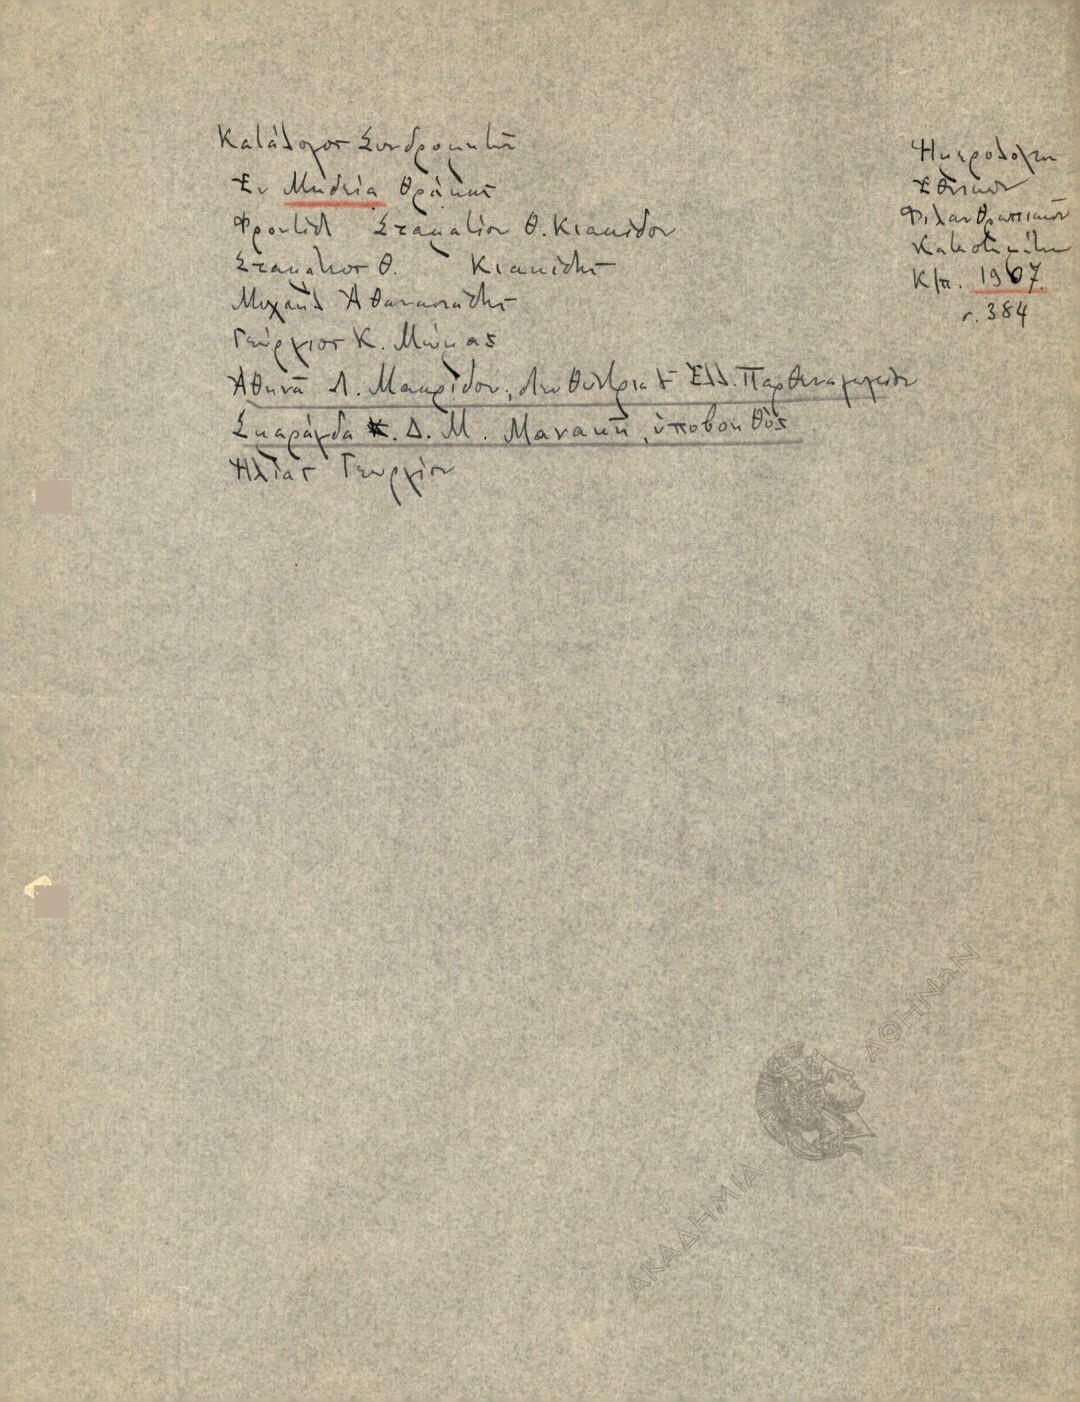 Κατάλογος Συνδρομητῶν
Ἐν Μηδείᾳ Θράκης
Φροντίδι Σταματίου Θ. Κιακίδου
Σταμάτιος Θ. Κιακίδης
Μιχαὴλ Ἀθανασιάδης
Γεώργιος Κ. Μώμας
Ἀθηνᾶ Δ. Μακρίδου, διευθύντρια τ. Ἑλλ. Παρθεναγωγείου
Σμαράγδα Δ. Μ. Μανακῆ, ὑποβοηθὸς
Ἠλίας Γεωργίου
Ἡμερολόγιον
Ἐθνικῶν
Φιλανθρωπικῶν
Καταστημάτων
Κ/π. 1907.
σ. 384
ΑΚΑΔΗΜΙΑ ΑΘΗΝΩΝ